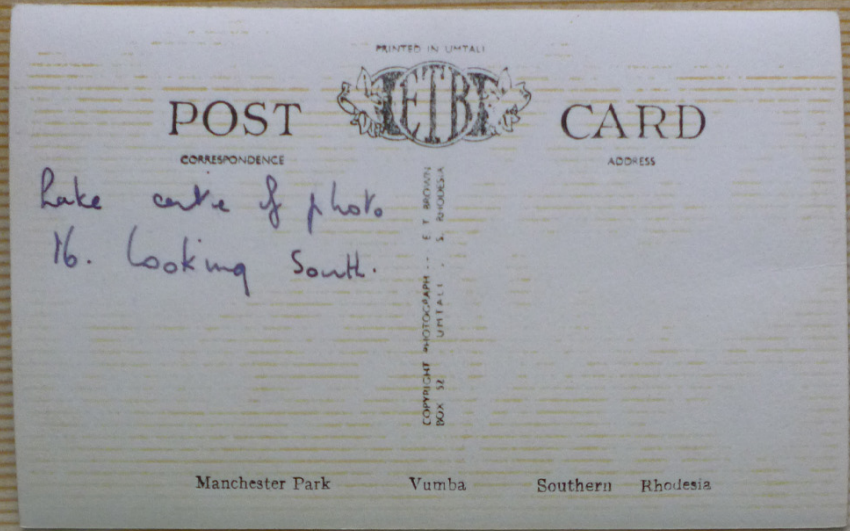 PRINTED IN UMTALI
ETB
POST CARD
CORRESPONDENCE
ADDRESS
Lake centre of photo
16. Looking South.
COPYRIGHT PHOTOGRAPH -- E T BROWN
BOX 52 UMTALI . S. RHODESIA
Manchester Park Vumba Southern Rhodesia